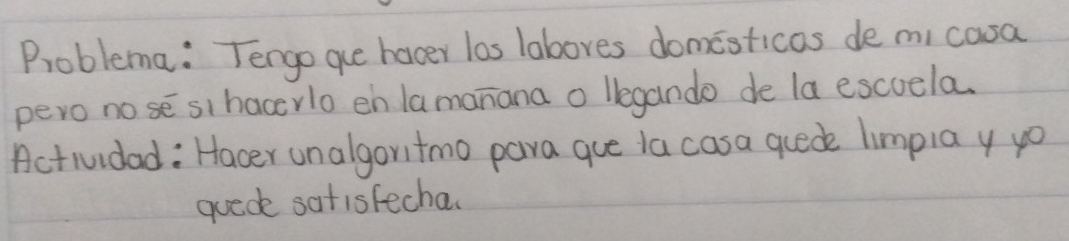 Problema: Tengo que hacer las labores domésticas de mi casa
pero no sé si hacerlo en la mañana o llegando de la escuela.
Actividad: Hacer un algoritmo para que la casa quede limpia y yo
quede satisfecha.